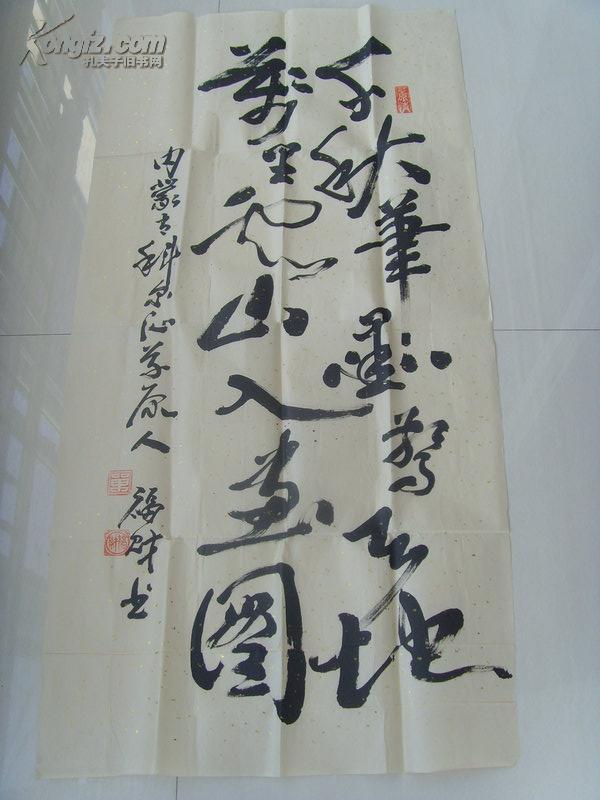 千秋筆墨驚天地
萬里雲山入畫圖
内蒙古科尔沁草原人
福財书
Kongfz.com
孔夫子旧书网